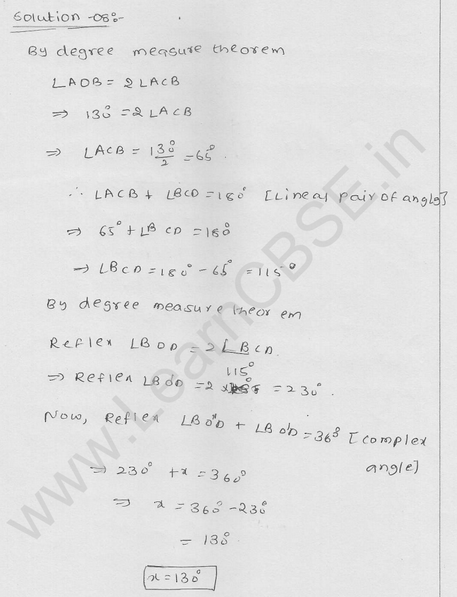 Solution -08:-
By degree measure theorem
∠AOB = 2∠ACB
⇒ 130° = 2∠ACB
⇒ ∠ACB = 130°/2 = 65°.
∴ ∠ACB + ∠BCD = 180° [Linear pair of angle]
⇒ 65° + ∠BCD = 180°
→ ∠BCD = 180° - 65° = 115°
By degree measure theorem
Reflex ∠BOD = 2∠BCD
115°
⇒ Reflex ∠BO'D = 2 x = 230°.
Now, reflex ∠BO'D + ∠BO'D = 360° [complex angle]
⇒ 230° + x = 360°
⇒ x = 360° - 230°
= 130°
x = 130°
www.LearnCBSE.in